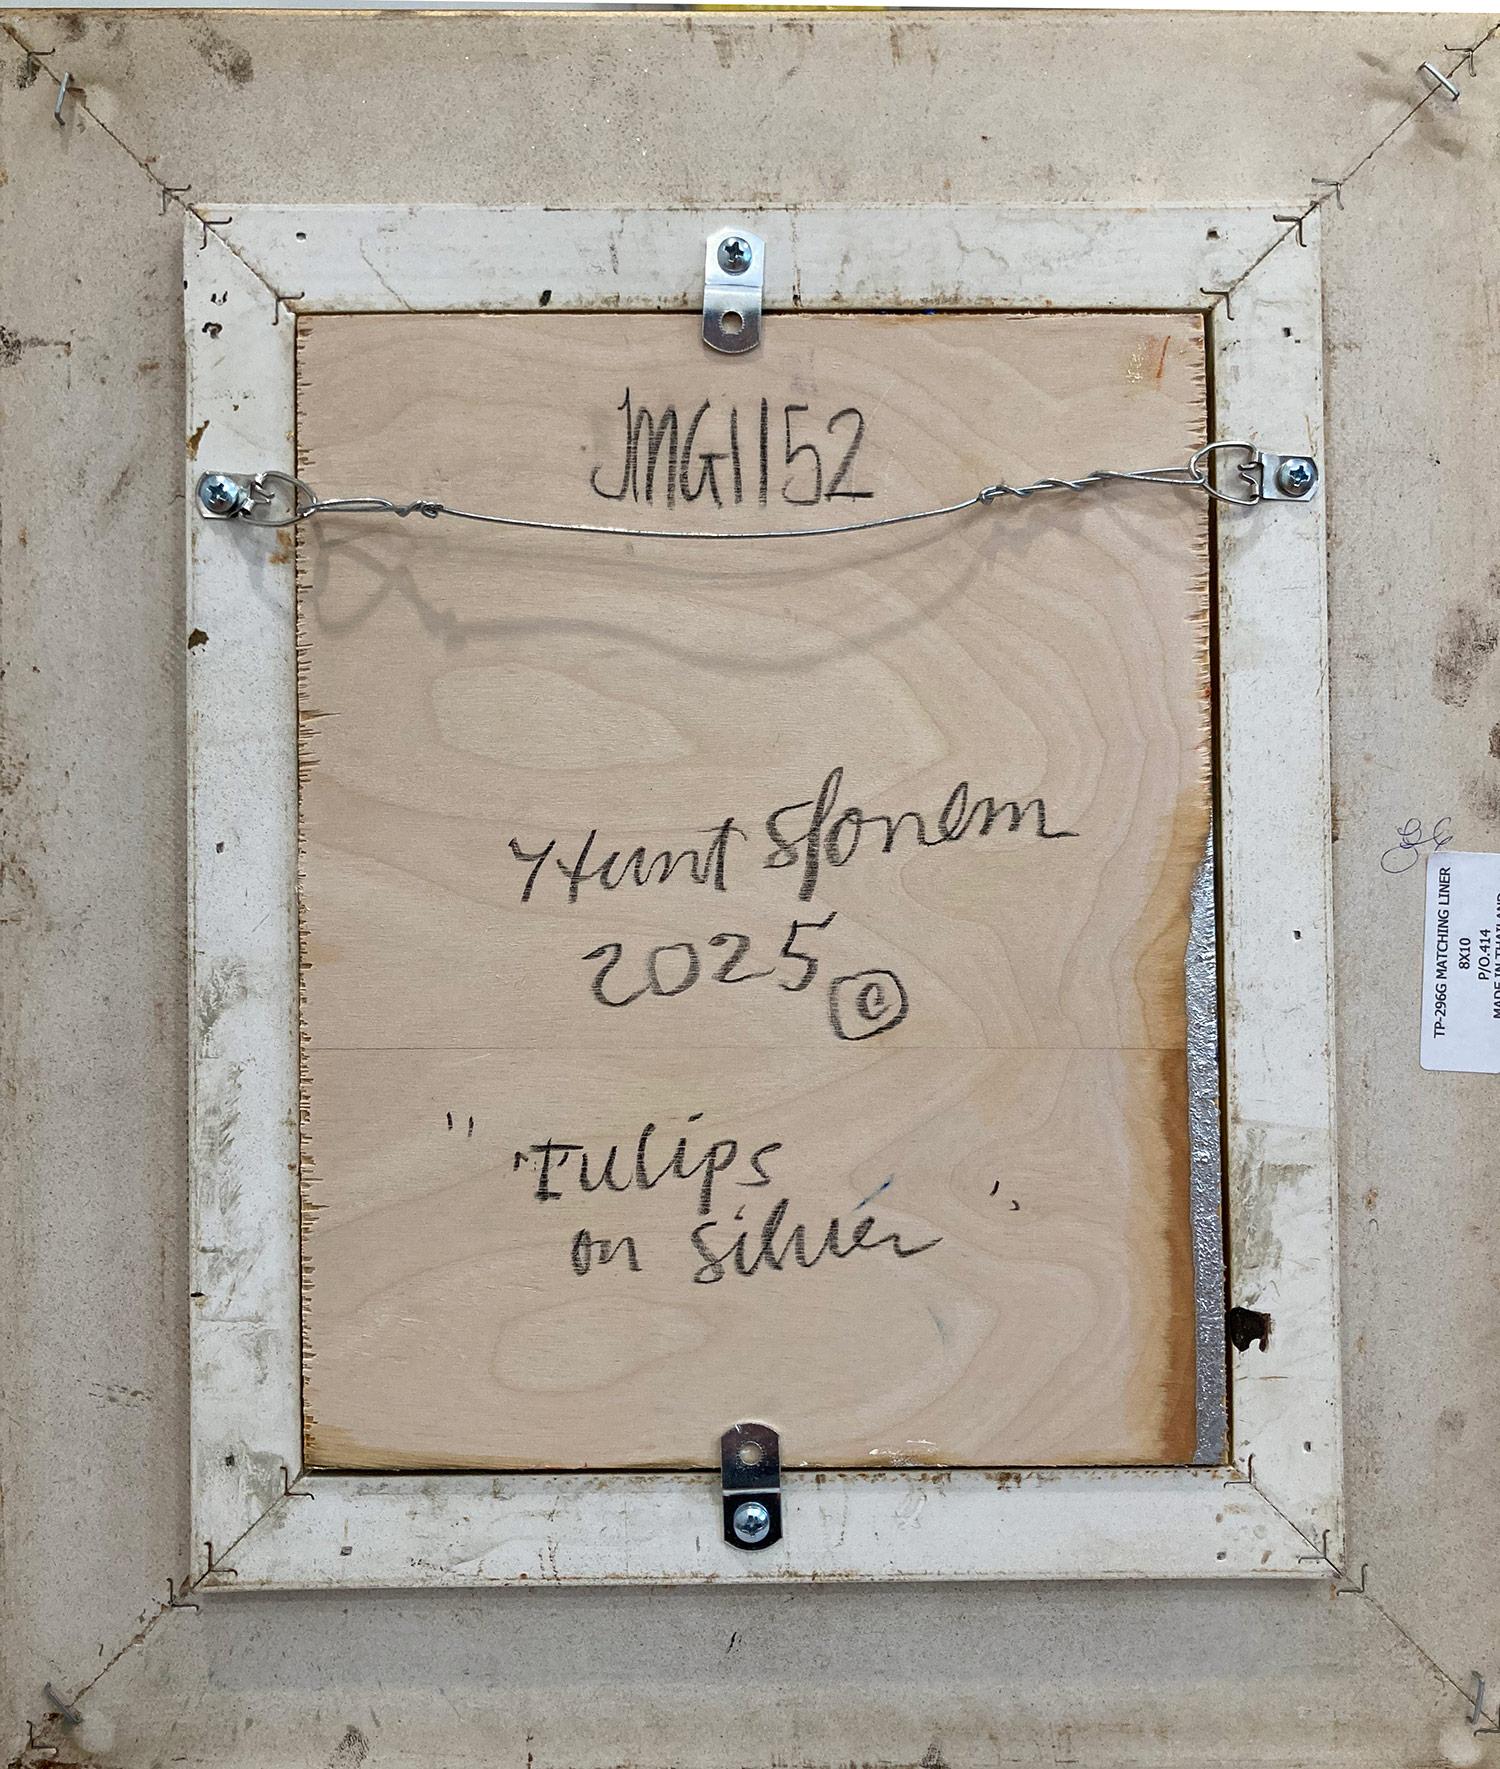 JMG1152
Hunt Slonem
2025 ©
"Tulips
on silver"
TP-296G MATCHING LINER
8X10
P/O.414
MADE IN THAILAND